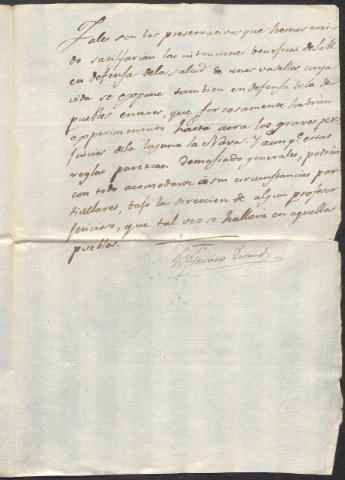 Tales son los preservativos que hemos crei-
do satisfarian las intenciones beneficas de
en defensa de la salud de unos vasallos, cuya
vida se expone tambien en defensa de la de
que forzosamente habràn
experimentado hasta aora los graves per-
juicios de la laguna la Y aunqe. estas
reglas parezcan demasiado generales, podràn
con todo acomodarse à sus circunstancias par-
ticulares, baxo la direccion de algun profesor
juicioso, que tal vez se hallarà en aquellos
pueblos.